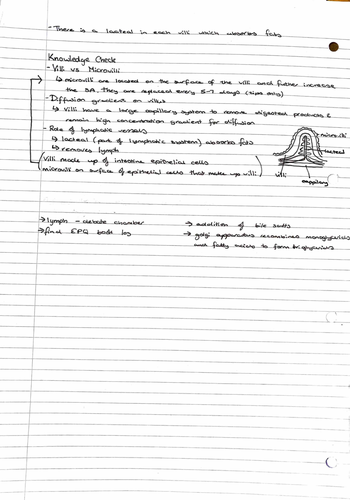 - There is a lacteal in each villi which absorbs fats
Knowledge Check
- Villi vs Microvilli
↳ microvilli are located on the surface of the villi and further increase
the SA. They are replaced every 5-7 days (tips only)
- Diffusion gradient on villus
↳ Villi have a large capillary system to remove digested products &
remain high concentration gradient for diffusion
- Role of lymphatic vessels
↳ lacteal (part of lymphatic system) absorbs fats
↳ removes lymph
Villi made up of intestine epithelial cells
microvilli on surface of epithelial cells that make up villi
microvilli
lacteal
villi
capillary
→ lymph - debate chamber
→ find EPQ book log
→ addition of bile salts
→ golgi apparatus recombines monoglycerides
and fatty acids to form triglycerides